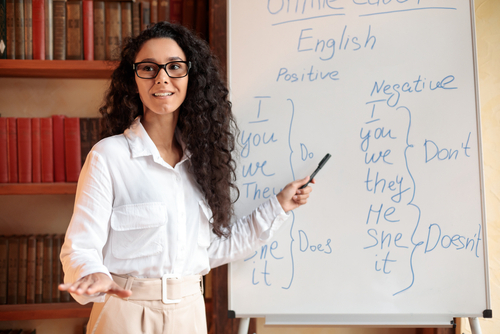 Online
English
Positive
I
you
we
They
Do
She
it
Does
Negative
I
you
we
they
Don't
He
She
it
Doesn't